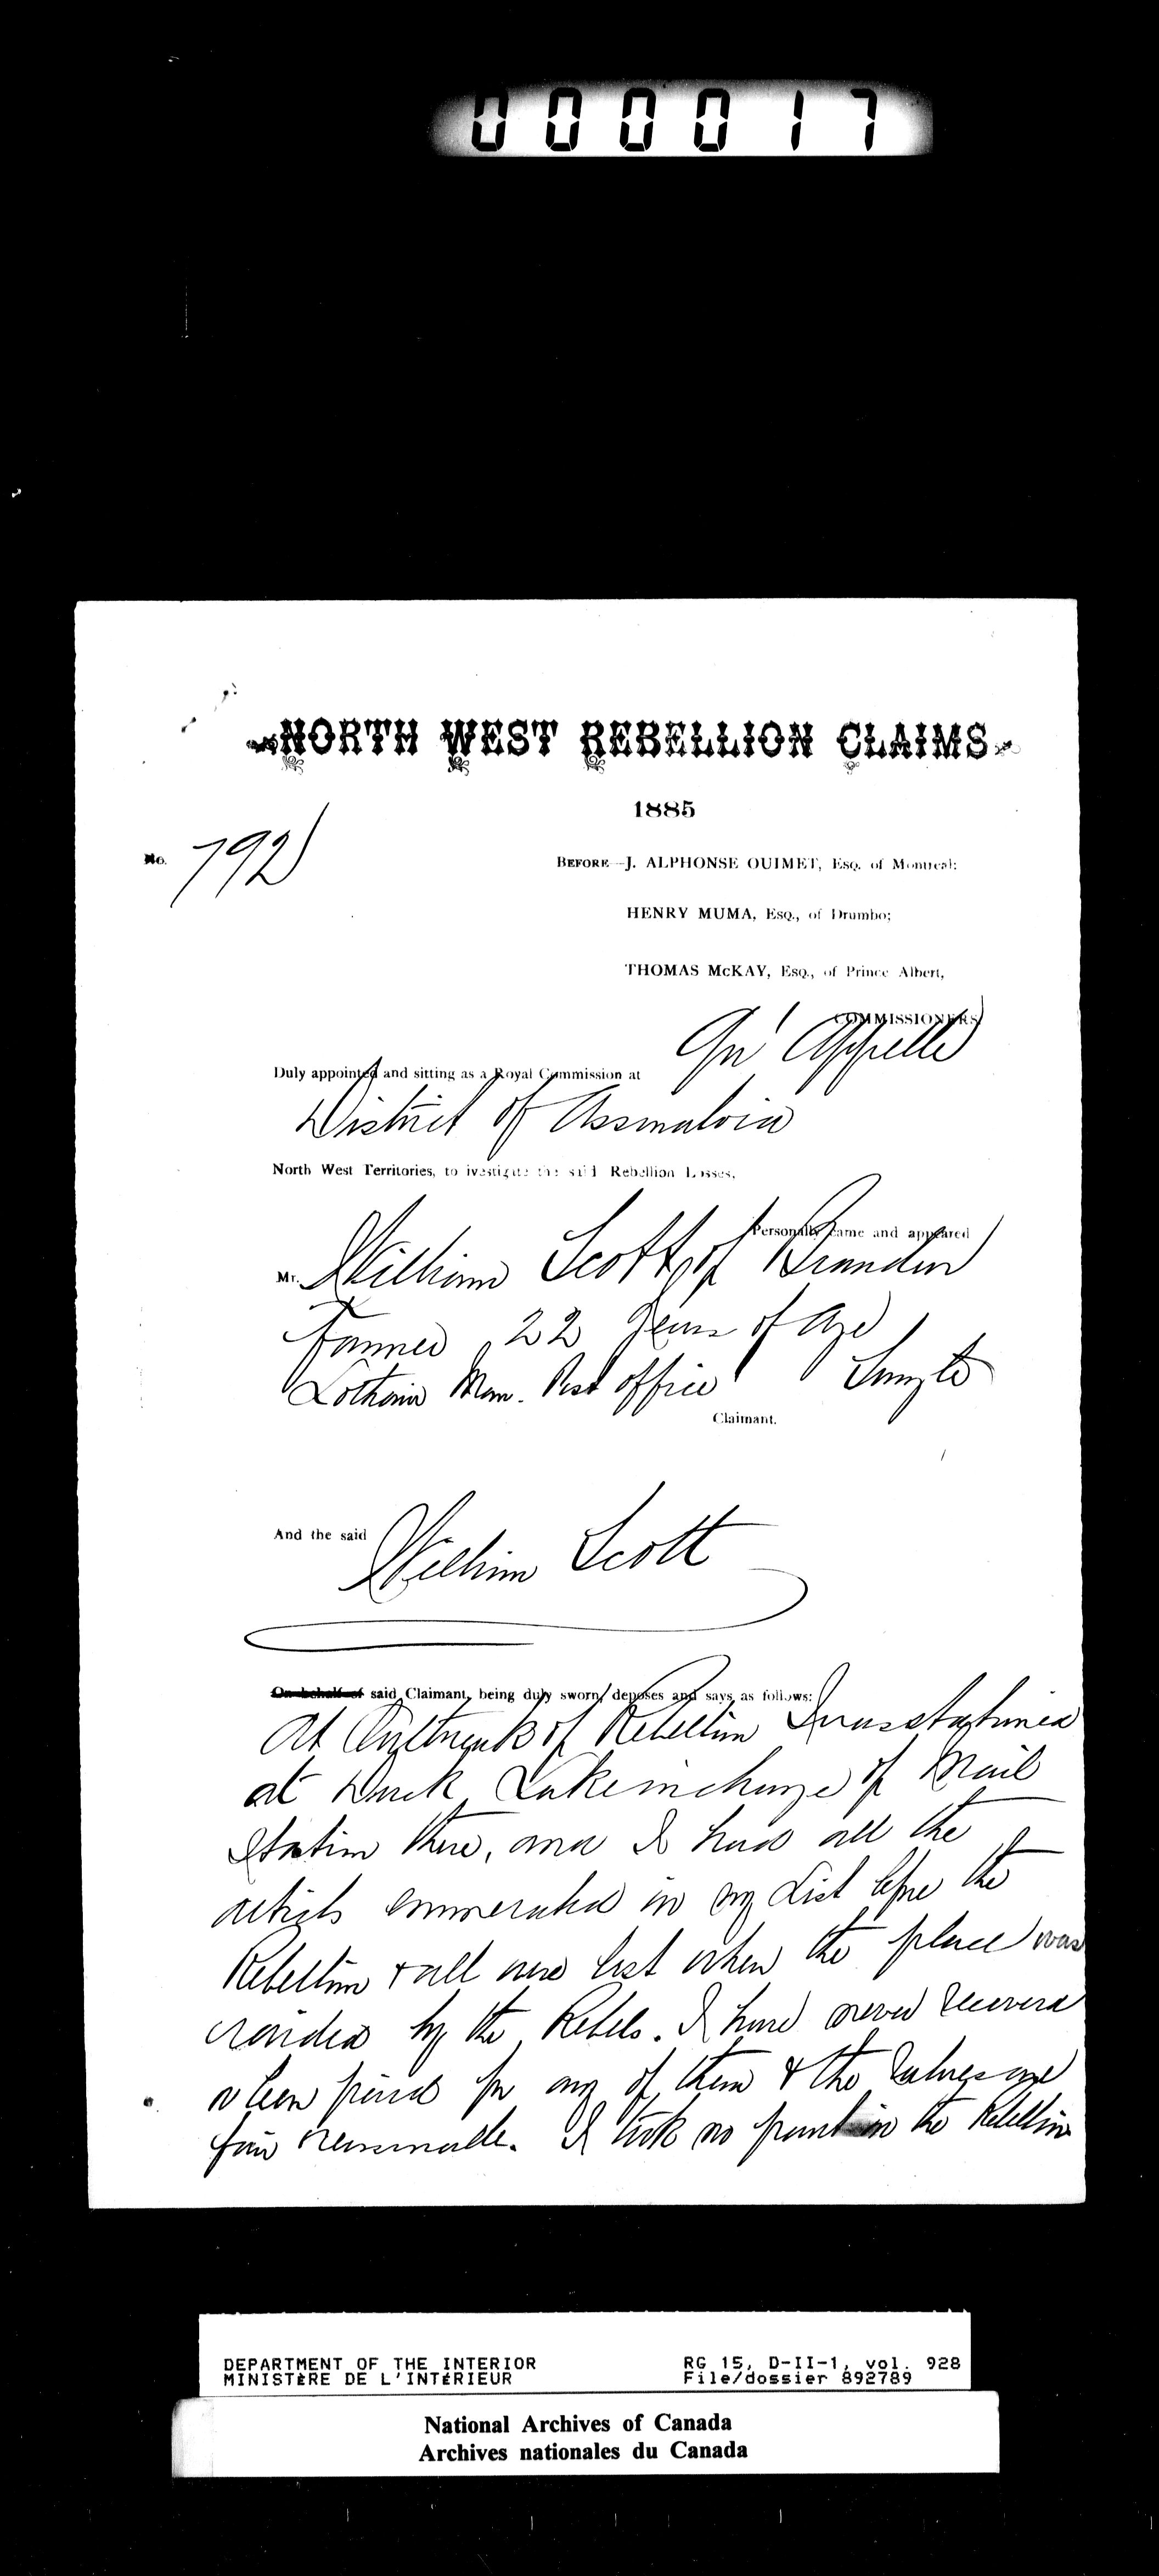 000017
NORTH WEST REBELLION CLAIMS
1885
No. 792
BEFORE—J. ALPHONSE OUIMET, Esq. of Montreal;
HENRY MUMA, Esq., of Drumbo;
THOMAS McKAY, Esq., of Prince Albert,
COMMISSIONERS
Duly appointed and sitting as a Royal Commission at Qu'Appelle
District of Assinaboia
North West Territories, to ivestigate the said Rebellion Losses,
Personally came and appeared
Mr. William Scott of Brandon
Farmer 22 Years of Age
Lothair Man. Post office Single
Claimant.
And the said William Scott
On behalf of said Claimant, being duly sworn, deposes and says as follows:
At Outbreak of Rebellion I was stationed
at Duck Lake in charge of Mail
Station there, and I had all the
articles enumerated in my List before the
Rebellion & all were lost when the place was
raided by the Rebels. I have never recovered
or been paid for any of them & the values are
fair reasonable. I took no part in the Rebellion
DEPARTMENT OF THE INTERIOR
MINISTÈRE DE L'INTÉRIEUR
RG 15, D-II-1, vol. 928
File/dossier 892789
National Archives of Canada
Archives nationales du Canada